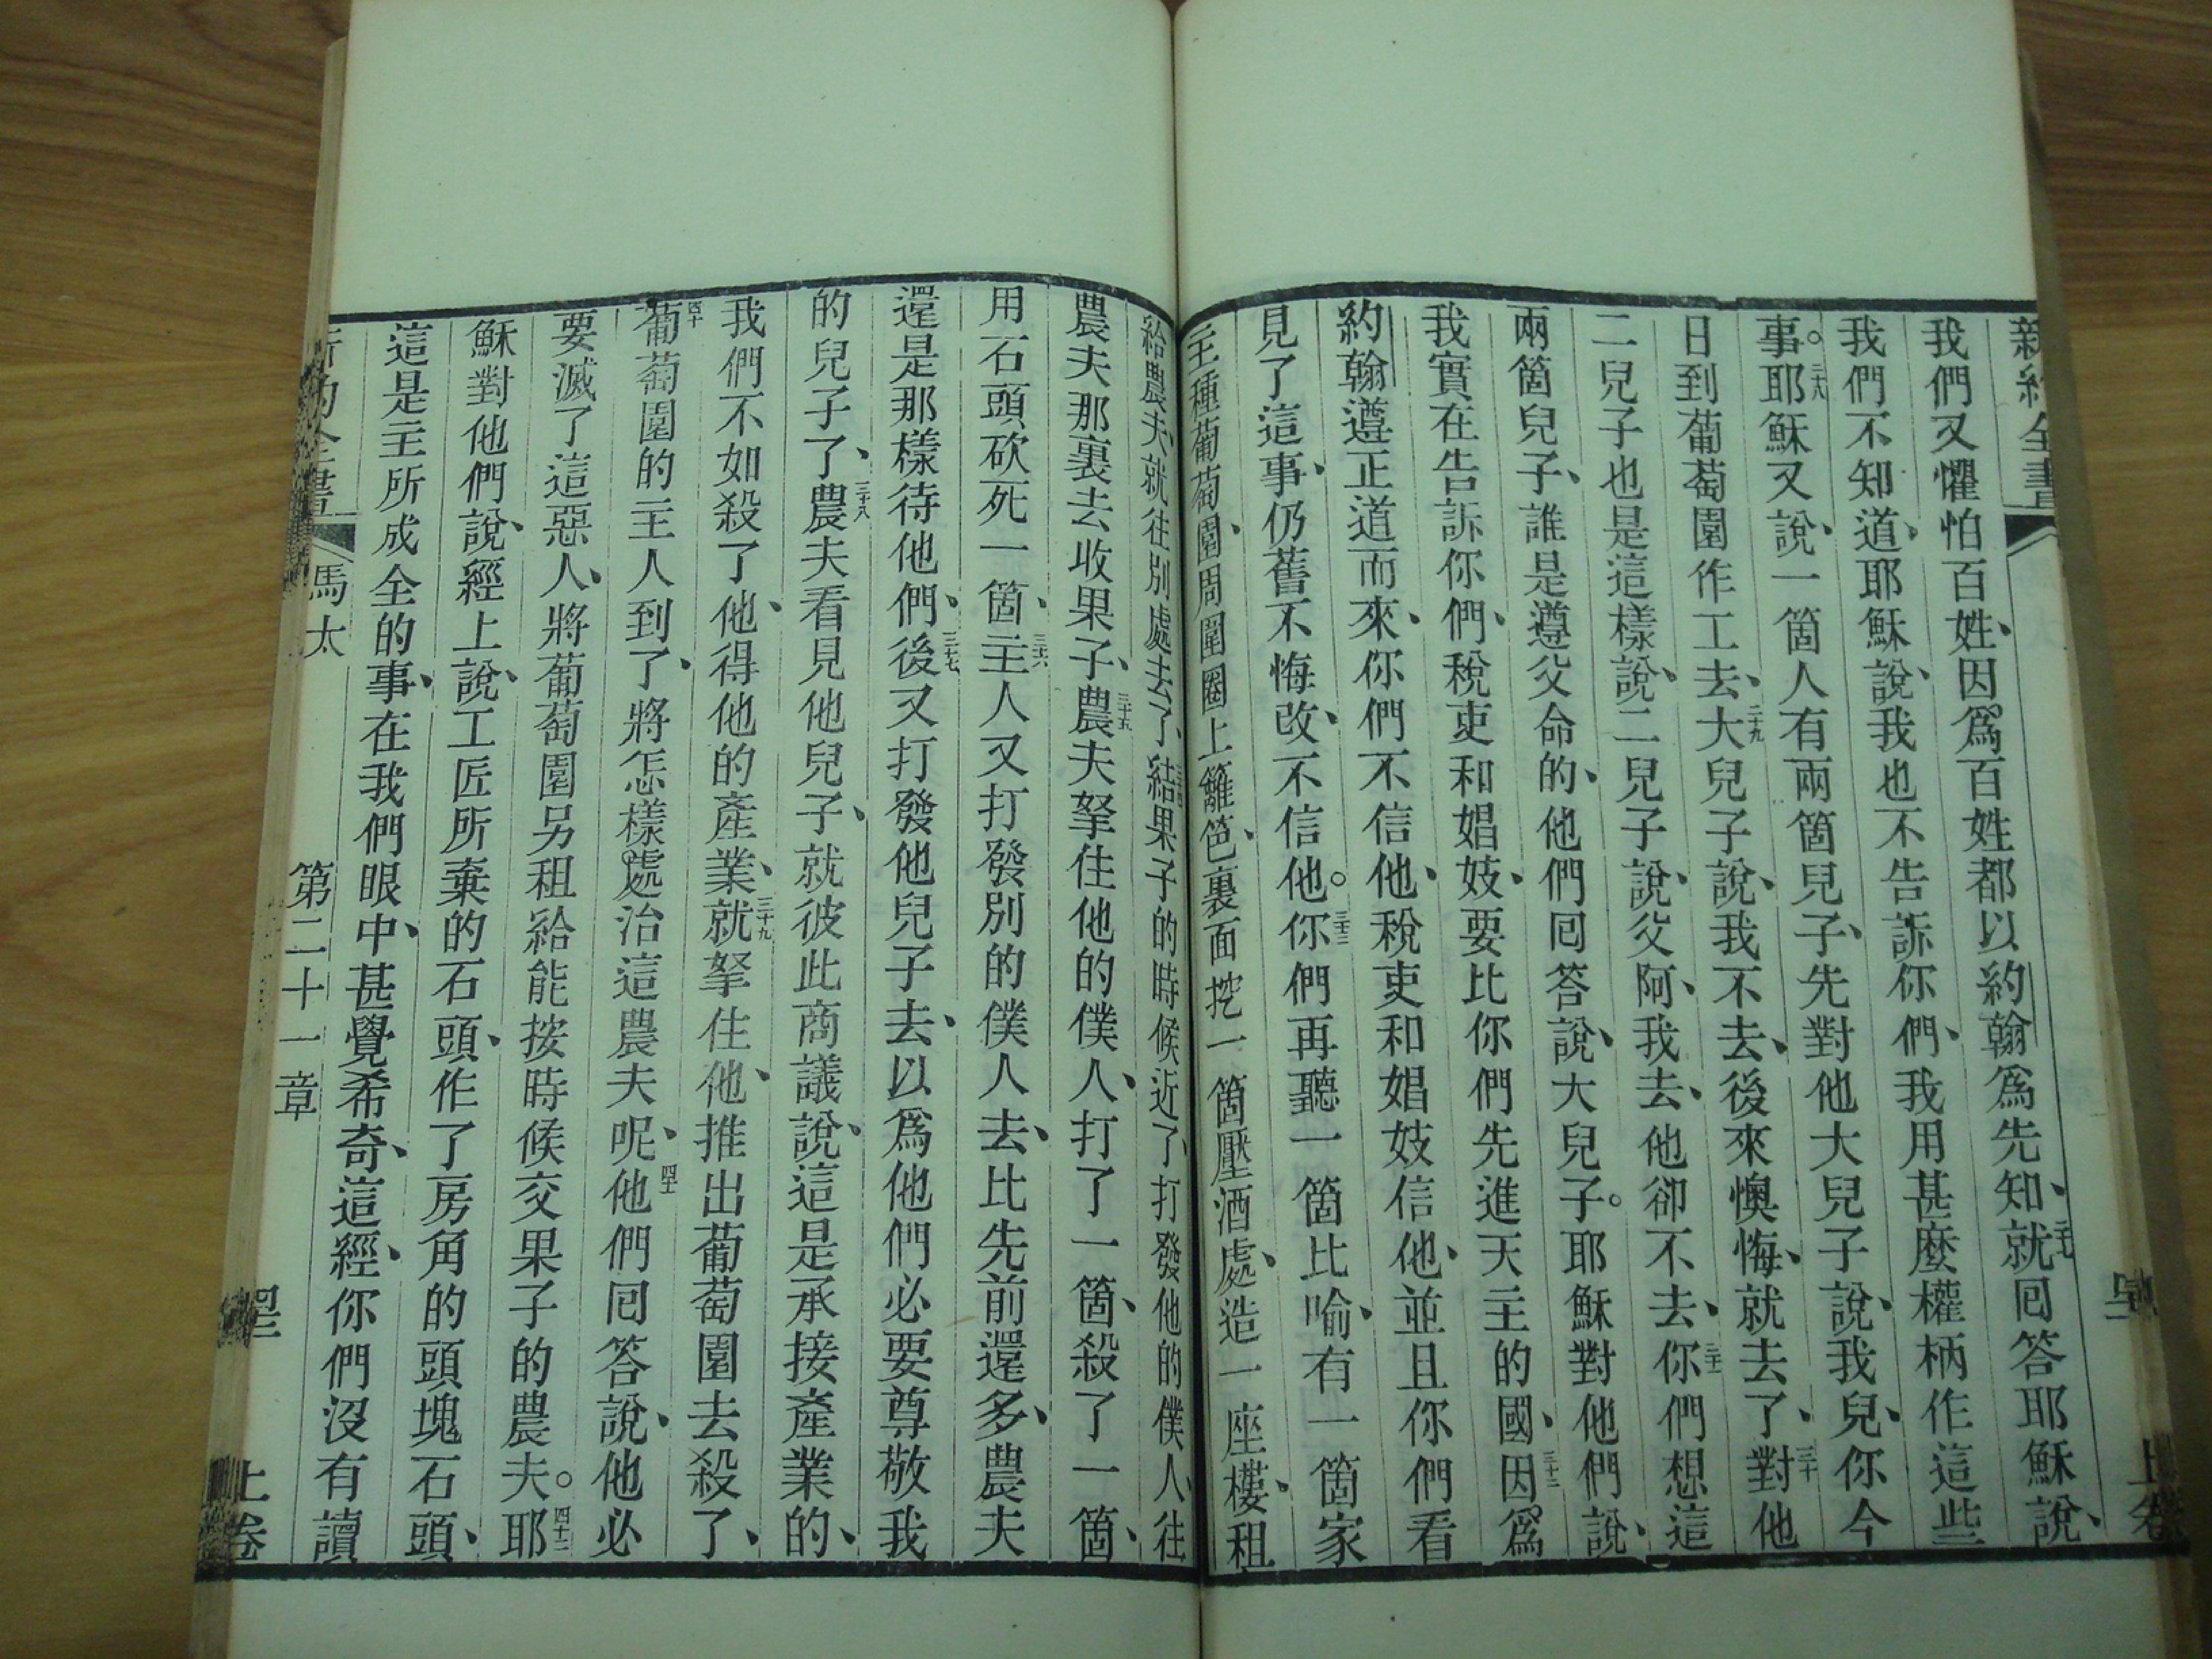 新約全書
上卷
我們又懼怕百姓、因爲百姓都以約翰爲先知、就囘答耶穌說、
我們不知道、耶穌說、我也不告訴你們、我用甚麼權柄作這些
事。二十八耶穌又說、一箇人有兩箇兒子、先對他大兒子說、我兒、你今
日到葡萄園作工去、二十九大兒子說、我不去、後來懊悔、就去了、三十對他
二兒子也是這樣說、二兒子說、父阿、我去、他卻不去、三十一你們想這
兩箇兒子、誰是遵父命的、他們囘答說、大兒子。耶穌對他們說、
我實在告訴你們、稅吏和娼妓、要比你們先進天主的國、三十二因爲
約翰遵正道而來、你們不信他、稅吏和娼妓信他、並且你們看
見了這事、仍舊不悔改、不信他。三十三你們再聽一箇比喻、有一箇家
主種葡萄園、園周圍圈上籬笆、裏面挖一箇壓酒處、造一座樓、租
給農夫、就往別處去了、三十四結果子的時候近了、打發他的僕人、往
農夫那裏去收果子、三十五農夫拏住他的僕人、打了一箇、殺了一箇、
用石頭砍死一箇、三十六主人又打發別的僕人去、比先前還多、農夫
還是那樣待他們、三十七後又打發他兒子去、以爲他們必要尊敬我
的兒子了、三十八農夫看見他兒子、就彼此商議說、這是承接產業的、
我們不如殺了他、得他的產業、三十九就拏住他、推出葡萄園去殺了、
四十葡萄園的主人到了、將怎樣處治這農夫呢、四十一他們囘答說、他必
要滅了這惡人、將葡萄園另租給能按時候交果子的農夫。四十二耶
穌對他們說、經上說、工匠所棄的石頭、作了房角的頭塊石頭、
這是主所成全的事、在我們眼中、甚覺希奇、這經、你們沒有讀
新約全書 馬太 第二十一章 上卷